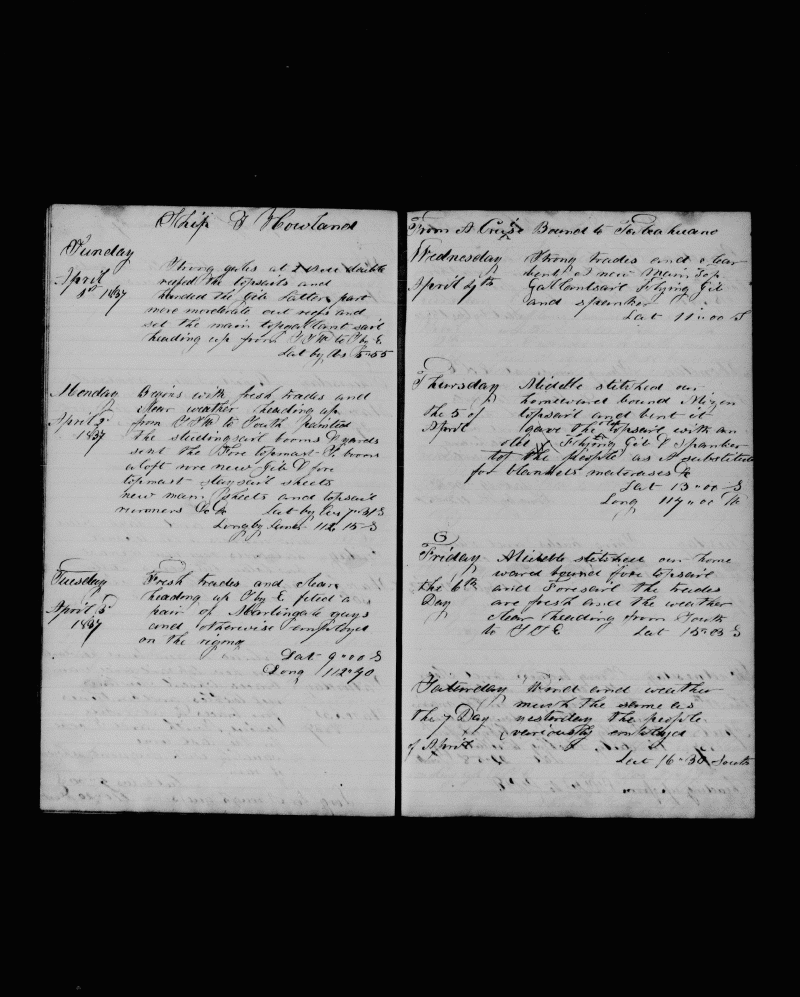 Ship G Howland
Sunday
April
1837
Strong gales at double
reefed the topsails and
handed the Gib latter part
more moderate out reefs and
set the main topgallant sail
heading up from to S by E
Lat by 5"55
Monday
April 3
1837
Begins with fresh trades and
clear weather heading up
from SSW to South painted
the studingsail booms & yards
sent the Fore topmast St booms
aloft rove new Gib & fore
topmast staysail sheets
new main sheets and topsail
runners Lat by 7" S
Long by 112 15
Tuesday
April
1837
Fresh trades and clear
heading up S by E fited a
pair of Martingale guys
and otherwise employed
on the riging
Lat 9"00 S
Long 112"40
From A Cruise Bound to Talcahuano
Wednesday
April 4th
Strong trades and clear
bent a new Main Top
Gallantsail Flying Gib
and spanker
Lat 11"00 S
Thursday
the 5 of
April
Middle stitched our
homeward bound Mizen
topsail and bent it
gave the topsail with an
old Flying Gib & Spanker
to the people as A substitute
for blankets matrasses &c
Lat 13"00 S
Long 117"00 W
6
Friday
the 6th
Day
Middle stitched our home
ward bound fore topsail
and Foresail the trades
are fresh and the weather
clear heading from South
to SSE Lat 15"03 S
Saturday
the 7 Day
of April
Wind and weather
much the same as
yesterday the people
variously employed
Lat 16"30 South